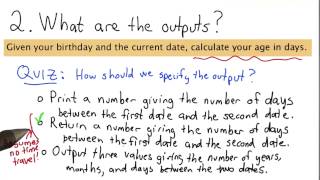 2. What are the outputs?
Given your birthday and the current date, calculate your age in days.
QUIZ: How should we specify the output?
o Print a number giving the number of days
between the first date and the second date.
o Return a number giving the number of days
between the first date and the second date.
assumes
no time
travel!
o Output three values giving the number of years,
months, and days between the two dates.